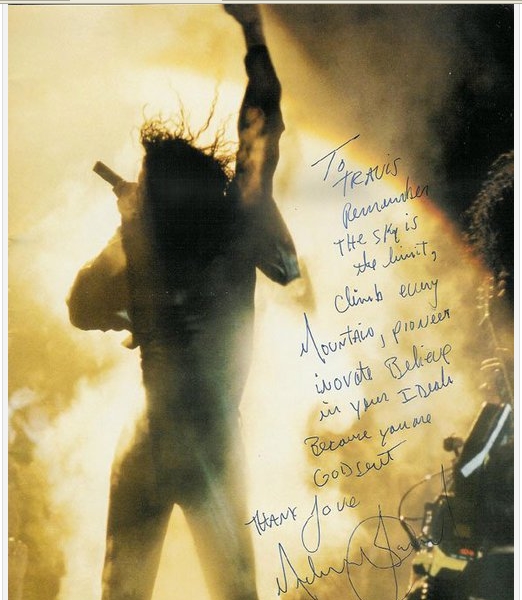 To
TRAVIS
Remember
THE SKY is
the limit,
Climb every
MOUNTAIN, pioneer
inovate Believe
in your IDeals
Because you are
GODsent
THANX Love